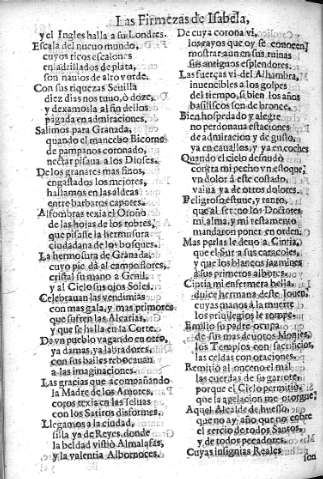 Las Firmezas de Isabela,
y el Ingles halla a su Londres.
Escala del nueuo mundo,
cuyos ricos escalones
enladrillados de plata,
son nauios de alto borde.
Con sus riquezas Seuilla
diez dias nos tuuo, ò doze,
y dexamosla al fin dellos
pagada en admiraciones.
Salimos para Granada,
quando el mancebo Bicorne
de pampanos coronado,
nectar pisaua a los Dioses.
De los granates mas finos,
engastados los mejores,
hallamos en las aldeas
entre barbaros capotes.
Alfombras texia el Otoño
de las hojas de los robres,
que pisasse la hermosura
ciudadana de los bosques.
La hermosura de Granada,
cuyo pie dà al campo flores,
cristal su mano a Genil,
y al Cielo sus ojos Soles.
Celebrauan las vendimias
con mas gala, y mas primores
que sufren las Alcarrias,
y que se halla en la Corte.
De vn pueblo vagando en otro,
ya damas, ya labradores,
con sus bailes rebocauan
a las imaginaciones.
Las gracias que acompañando
la Madre de los Amores,
coros texia en las seluas
con los Satiros disformes.
Llegamos a la ciudad,
silla ya de Reyes, donde
la beldad vistiò Almalafas,
y la valentia Albornoces.
De cuya corona vi,
los rayos que oy se conocen
mostrar aun en sus ruinas
sus antiguos esplendores.
Las fuerças vi del Alhambra,
inuencibles a los golpes
del tiempo, si bien los años
basiliscos son de bronce.
Bien hospedado y alegre
no perdonaua estaciones
de admiracion y de gusto,
ya en cauallos, y ya en coches
Quando el cielo desnudò
contra mi pecho vn estoque
vn dolor à este costado,
vaina ya de otros dolores.
Peligrosa estune, y tanto,
que al ser no los Doctores
mi alma, y mi testamento
mandaron poner en orden.
Mas perlas le deuo a Cintia,
que el Sur a sus caracoles,
y que los blancos jazmines
a sus primeros albores.
Cintia mi enfermera bella,
dulce hermana deste Jouen,
cuyas manos a la muerte
los priuilegios le rompe.
Emilio su padre ocupa
de sus mas deuotos Monjes,
los Templos con sacrificios,
las celdas con oraciones.
Remitiò al onceno el mal
las cuerdas de su garrote,
porque el Cielo permitiò,
que la apelacion me otorgue.
Aquel Alcalde de huesso,
que no ay año que no cobre
el tercio de todos Santos,
y de todos pecadores.
Cuyas insignias Reales
son